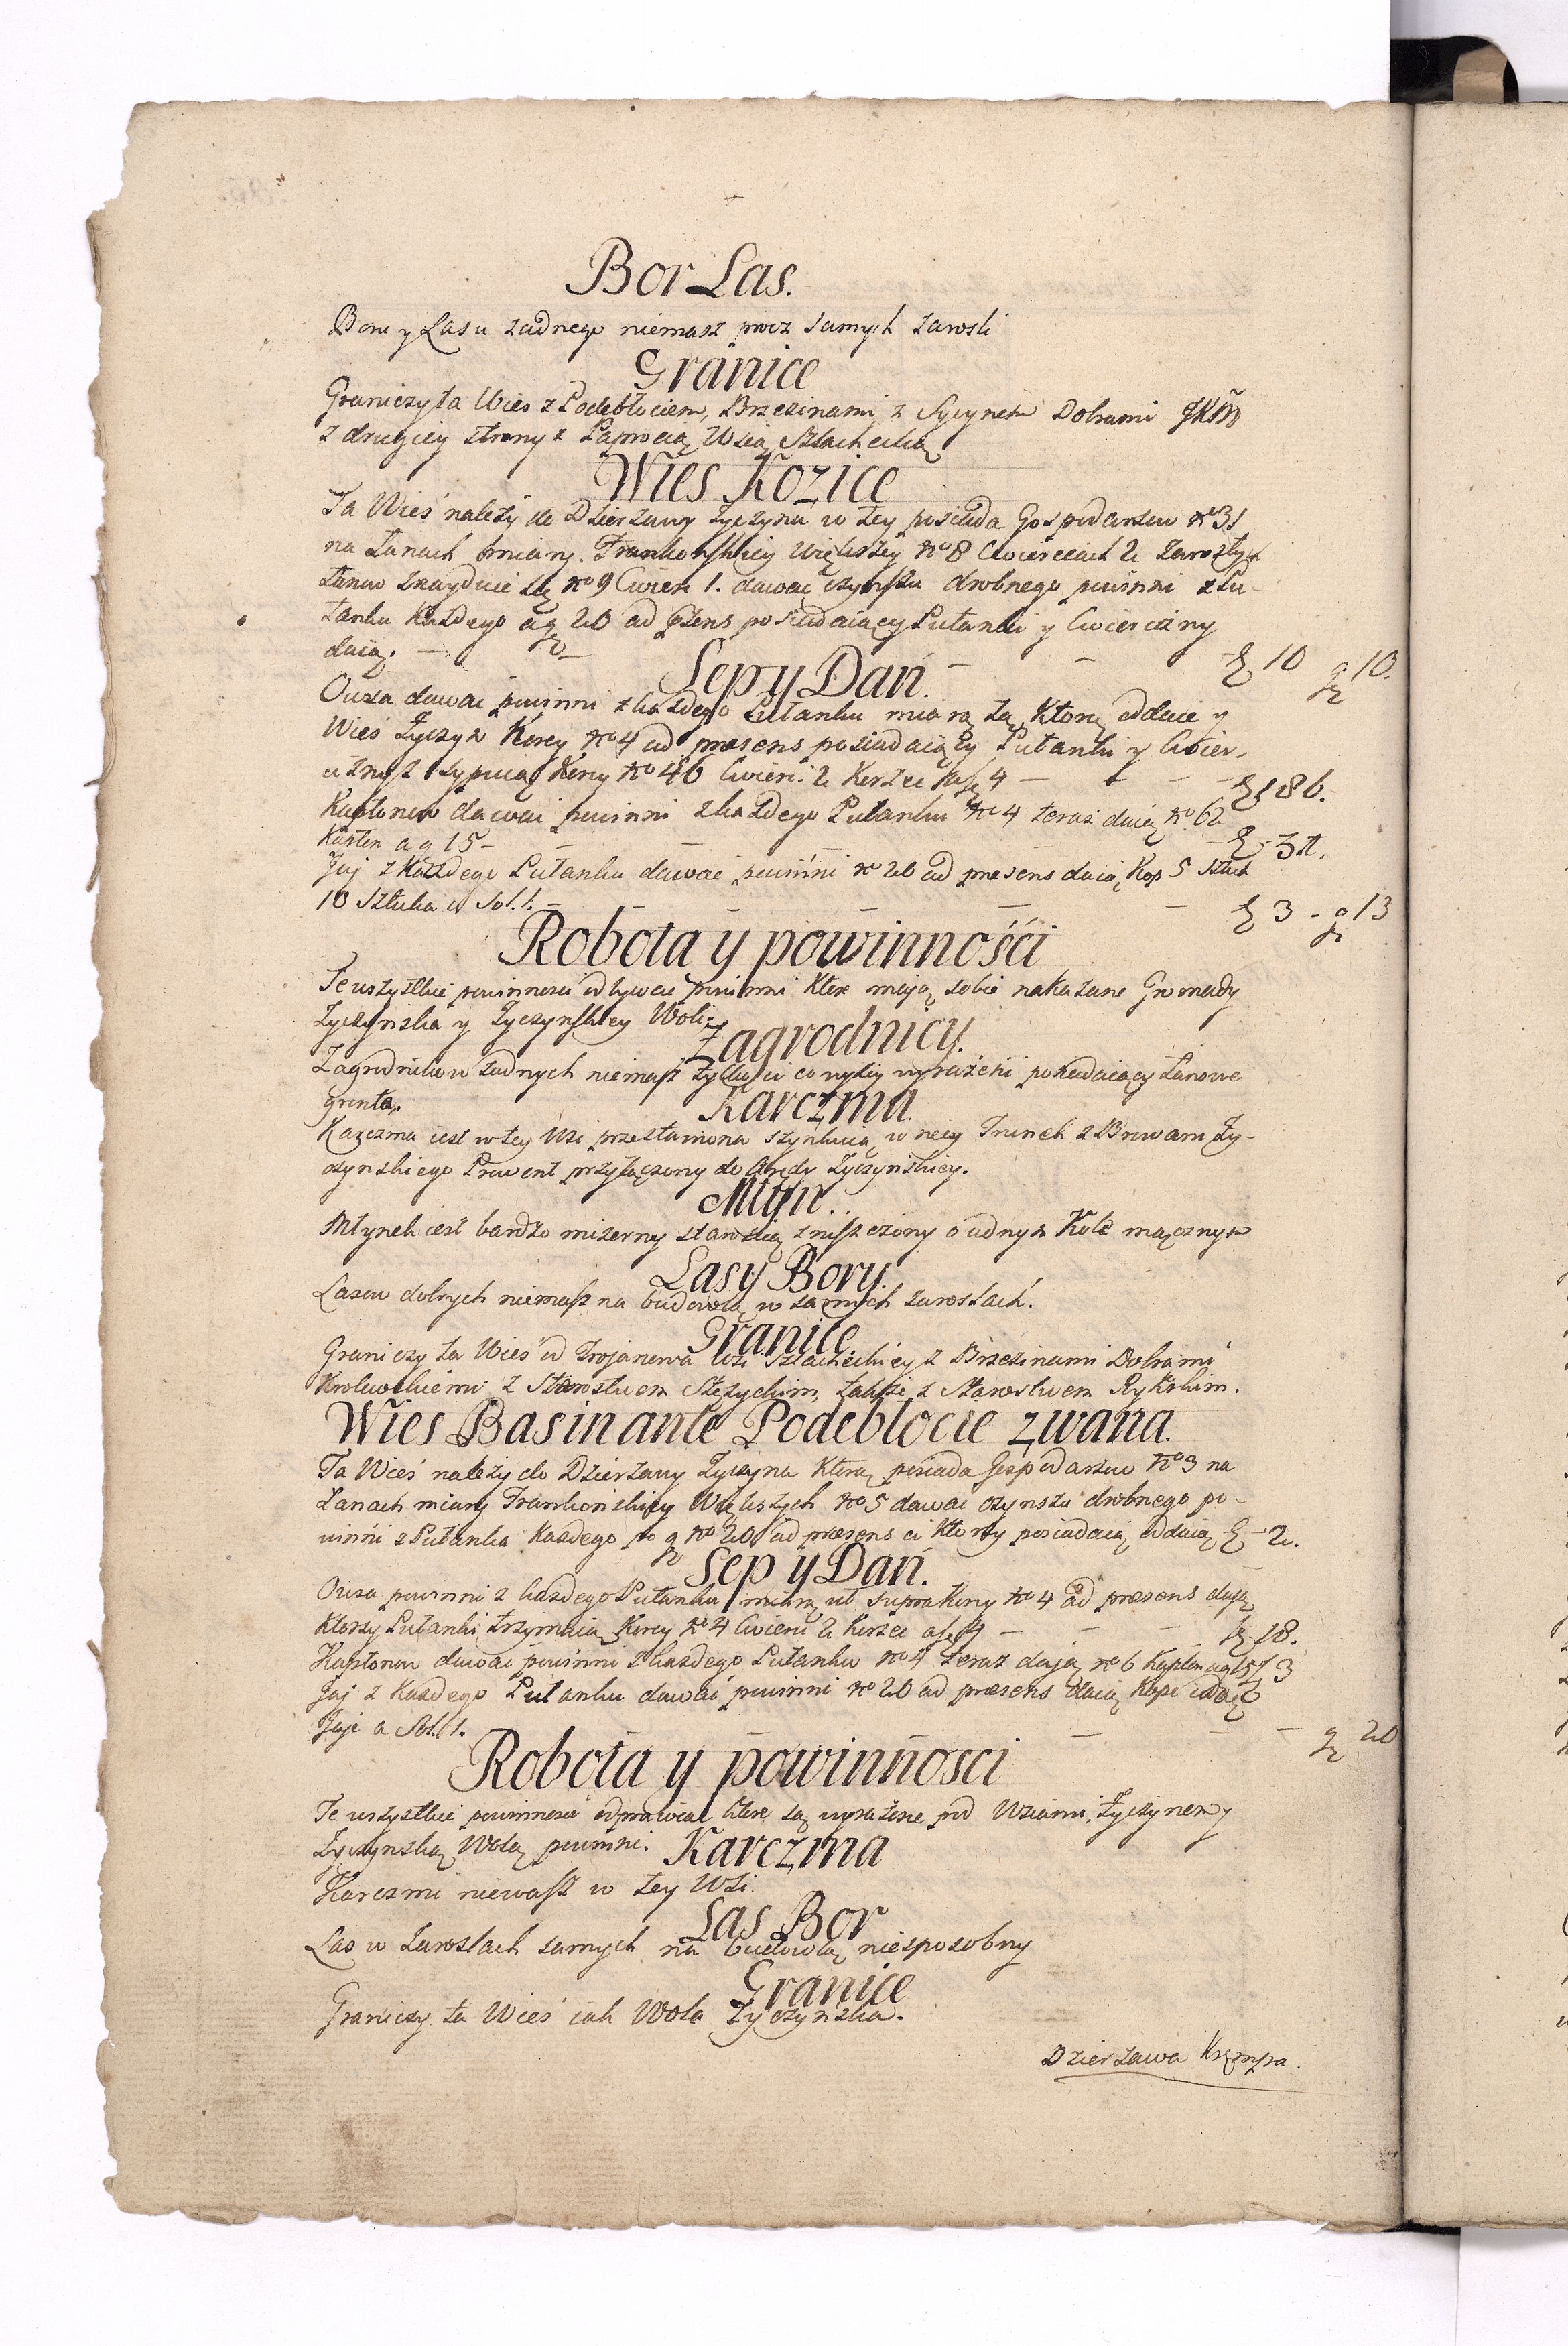 Bor Las.
Boru y Lasu zadnego niemasz procz samych zarosli
Granice
Graniczy ta Wies z Podebłociem, Brzezinami, z Sycynem Dobrami JKM
z drugiey strony z Paprocią Wsią Szlachecką
Wies Kozice
Ta Wieś należy do Dzierzawy Zyczyna w tey posiada Gospodarzow No 31
na Łanach miary Frankonskiey większey No 8 Cwierciach 2 zarosłych
Łanow znayduie się No 9 Cwierc 1. dawac czynszu drobnego powinni z Pu-
łanku Kazdego a g 20 ad præsens posiadaiący Pułanki y Cwierciny
daią. — — — 10 g 10.
Sep y Dań.
Owsa dawac powinni z kazdego Pułanku miarą tą, Ktorą oddaie y
Wieś Zyczyn Korcy No 4 ad præsens posiadaiący Pułanki y Cwier-
ci sypuią Korcy No 46 Cwierci 2 Korzec 4 — — — 186.
Kapłonow dawai powinni z kazdego Pułanku No 4 teraz daią No 62
Kapłon a g 15 — — — — 31.
Jaj z Każdego Pułanku dawac powinni No 20 ad præsens daią Kop 5 sztuk
10 Sztuka a Sol. 1. — — — 3 - g 13
Robota y powinnośći
Te wszystkie powinnosci odbywac powinni Ktore maią sobie nakazane Gromady
Zyczynska y Zyczynskiey Woli.
Zagrodnicy.
Zagrodnikow zadnych niemasz tylko ci co wyżey wyrażeni posiadaiący Łanowe
grunta.
Karczma
Karczma iest w tey Wsi przestawiona szynkuią w niey Trunek z Browaru Zy-
czynskiego Prowent przyłączony do Arędy Zyczynskiey.
Młyn.
Młynek iest bardzo mizerny starością zniszczony o iednym Kole mącznym
Lasy Bory.
Lasow dobrych niemasz na budowlą w samych zaroslach.
Granice
Graniczy ta Wieś od Trojanowa Wsi Szlacheckiey z Brzezinami Dobrami
Krolewskiemi z Starostwem Stęzyckim, także z Starostwem Rykskim.
Wies Basinante Podebłocie zwana.
Ta Wieś należy do Dzierzawy Zyczyna Ktorą posiada Gospodarzow No 3 na
Łanach miary Frankonskiey Większych No 5 dawac czynszu drobnego po-
winni z Pułanka Kazdego po g No 20 ad præsens ci Ktorzy posiadaią oddaią — 2.
Sep y Dań.
Owsa powinni z kazdego Pułanku miarą ut supra Korcy No 4 ad præsens daią
Ktorzy Pułanki trzymaią Korcy No 4 Cwierci 2 Korzec a 4 — — — 18.
Kapłonow dawac powinni z kazdego Pułanku No 4 teraz daią No 6 Kapłon a g 15 3
Jaj z Kazdego Pułanku dawać powinni No 20 ad præsens daią Kopę
Jaje a Sol. 1. — — — g 20
Robota y powinnosci
Te wszystkie powinnosci odprawiac ktore są wyrażone pod Wsiami, Zyczynem y
Zyczynską Wolą powinni.
Karczma
Karczmi niemasz w tey Wsi
Las Bor
Las w zaroslach samych na budowlą niesposobny
Granice
Graniczy ta Wieś iak Wola Zyczynska.
Dzierzawa Kręppa.